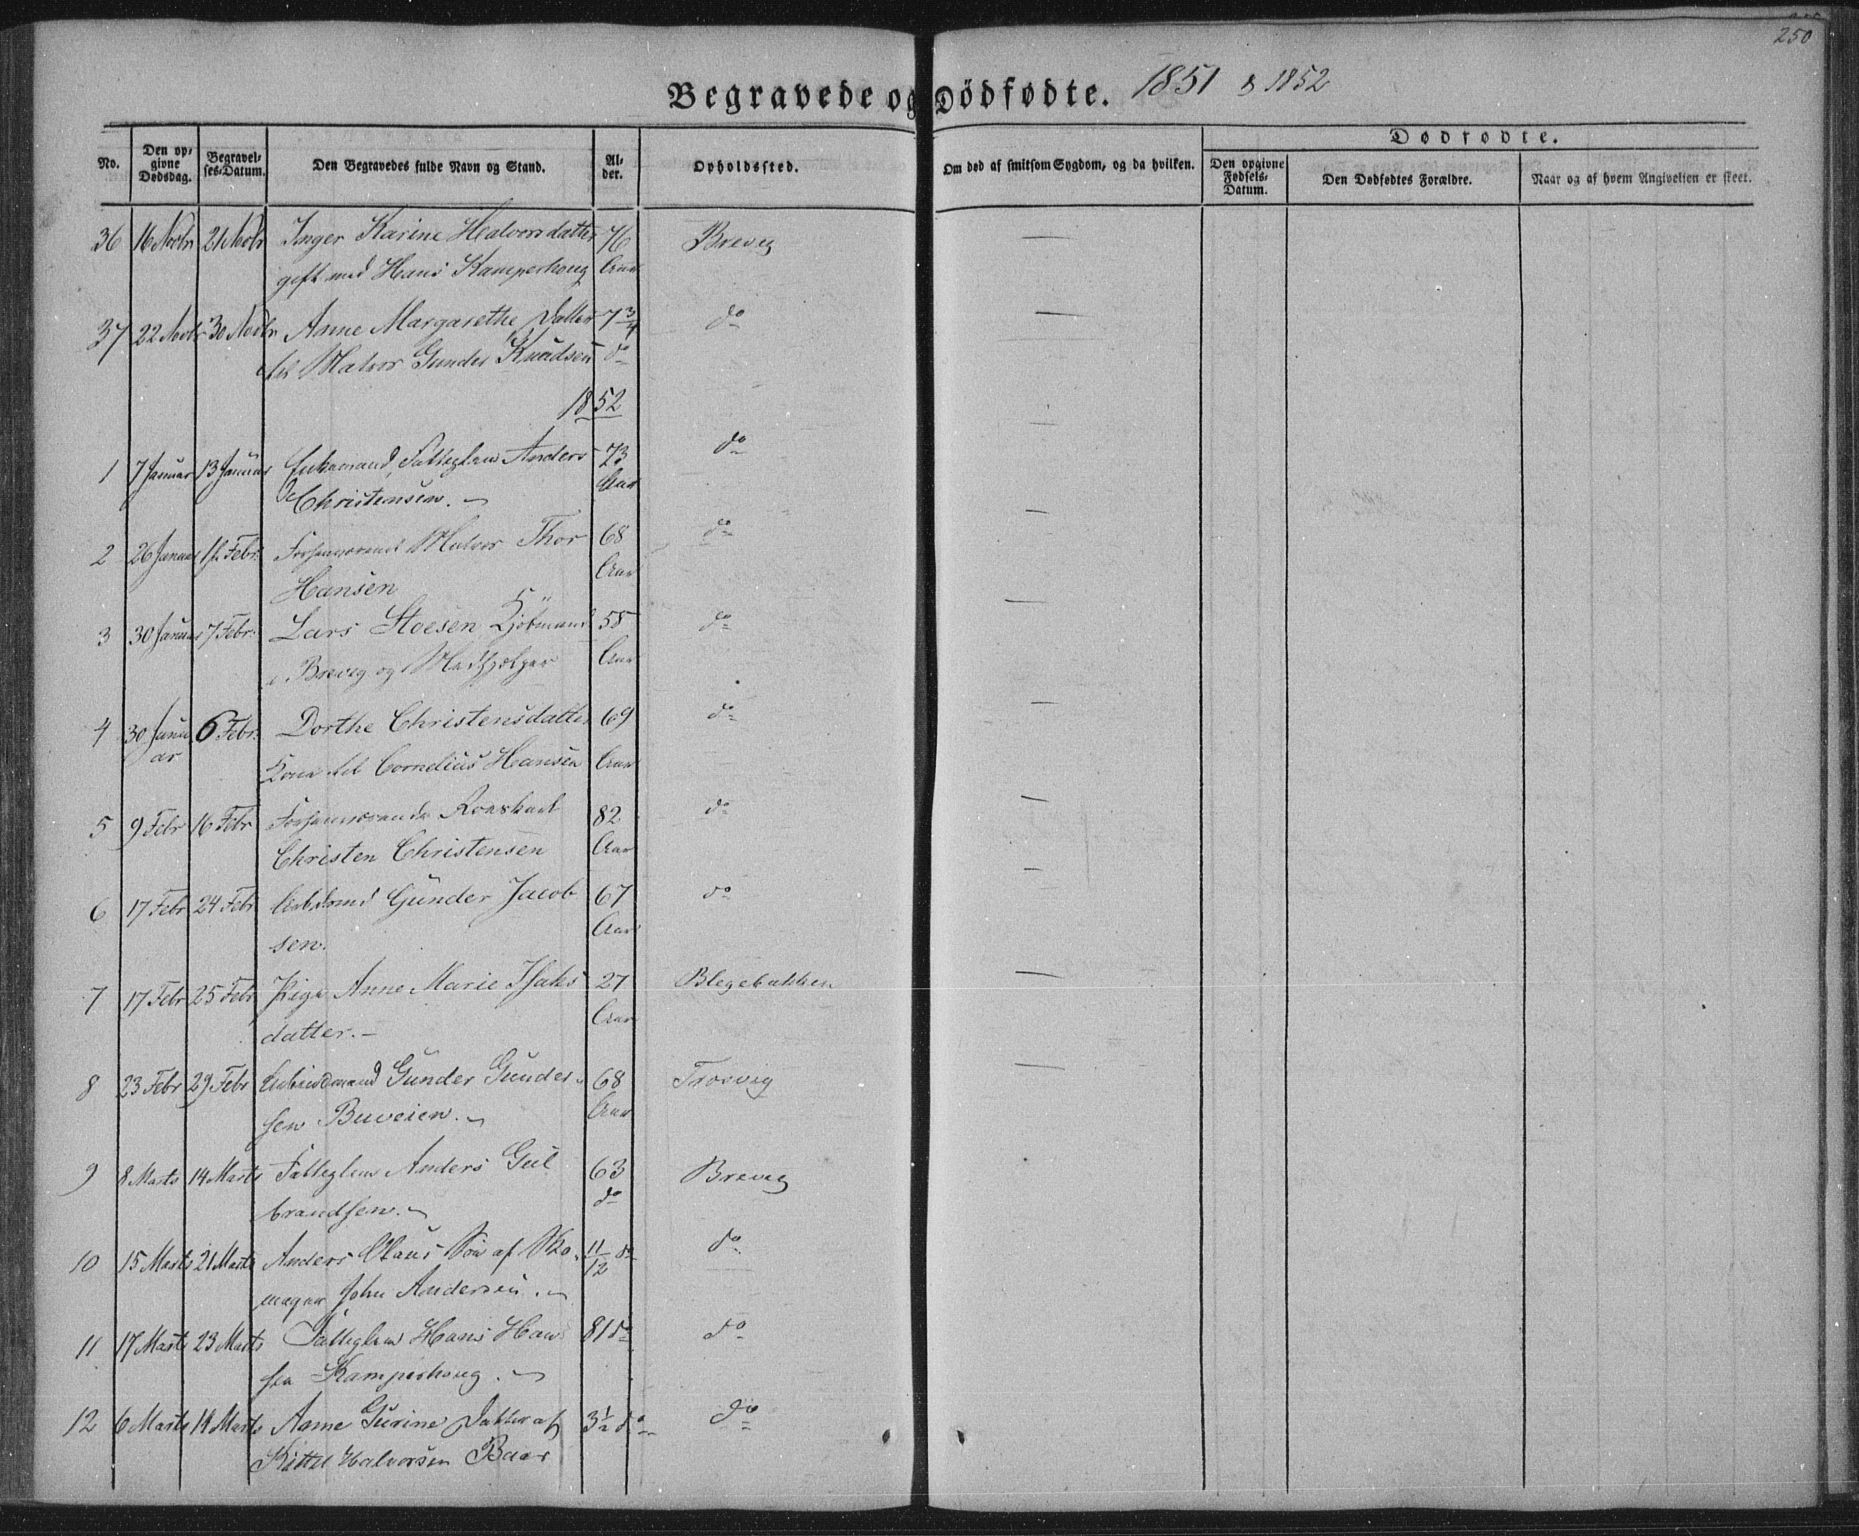 250
Begravede og Dödfødte. 1851 & 1852
Dødfødte.
No.
Den op-
givne
Dødsdag.
Begravel-
ses-Datum.
Den Begravedes fulde Navn og Stand.
Al-
der.
Opholdssted.
Om død af smitsom Sygdom, og da hvilken.
Den opgivne
Fødsels-
Datum.
Den Dødfødtes Forældre.
Naar og af hvem Angivelsen er skeet.
36 16 Novbr 21 Novbr Inger Karine Halvorsdatter 76 Brevig —
gift med Hans Kamperhoug Aar
37 22 Novbr 30 Novbr Anne Margarethe Datter 7 3/4 do —
til Halvor Gunder Knudsen do
1852
1 7 Januar 13 Januar Enkemand, Fattiglem Anders 73 do —
Christensen. Aar
2 26 Januar 1ste Febr. Forhenværend Halvor Thor 68 do —
Hansen Aar
3 30 Januar 7 Febr. Lars Stoesen Kjöbmand 55 do —
i Brevig og Medhjelper Aar
4 30 Janu 6 Febr. Dorthe Christensdatter 69 do —
ar
Kone til Cornelius Hansen Aar
5 9 Febr 16 Febr Forhenværende 82 do —
Christen Christensen Aar
6 17 Febr 24 Febr Arbdsmd Gunder Jacob 67 do —
sen. Aar
7 17 Febr 25 Febr Pige Anne Marie Isaks 27 Blegebakken —
datter. — Aar
8 23 Febr 29 Febr Arbeidsmand Gunder Gunder- 68 Trosvig —
sen Buveien. Aar
9 8 Marts 14 Marts Fattiglem Anders Gul 63 Brevig
brandsen. do
10 15 Marts 21 Marts Anders Olaus Søn af Sko- 11/12 do do
mager John Andersen.
11 17 Marts 23 Marts Fattiglem Hans Han 81 do do
sen Kamperhoug.
12 6 Marts 14 Marts Anne Gurine Datter af 3 1/2 do do
Kittel Halvorsen Baar